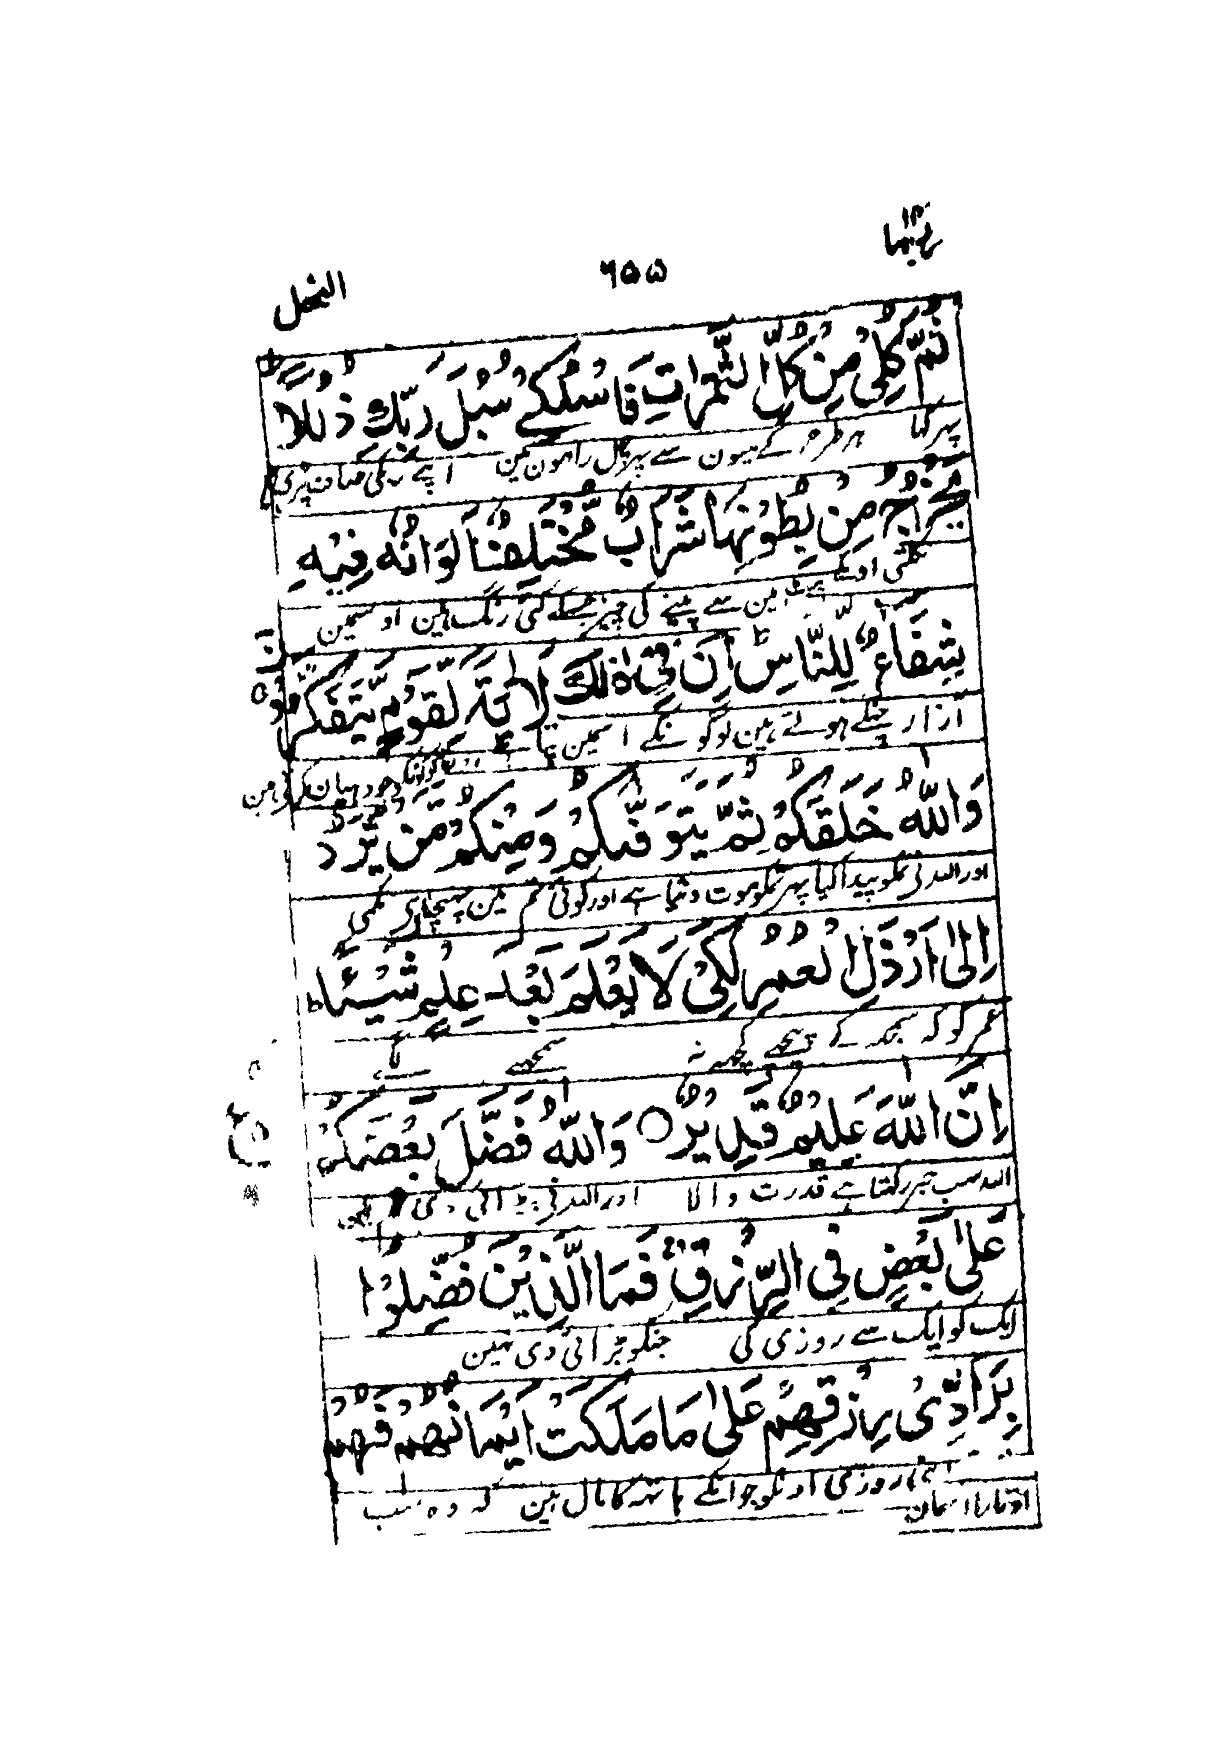 ربما ١٤
٦٥٥
النحل
ثُمَّ كُلِىْ مِنْ كُلِّ الثَّمَرٰتِ فَاسْلُكِىْ سُبُلَ رَبِّكِ ذُلُلًا
پہر کہا ہر طرح کے میون سے پہر چل راہون مین اپنے رب کی صاف پڑی
يَخْرُجُ مِنْۢ بُطُوْنِهَا شَرَابٌ مُّخْتَلِفٌ اَلْوَانُهٗ فِيْهِ
نکلتی اونکے پیٹ مین سے پینے کی چیز جسکے کئی رنگ ہین اوسمین
شِفَآءٌ لِّلنَّاسِ ؕ اِنَّ فِىْ ذٰلِكَ لَاٰيَةً لِّقَوْمٍ يَّتَفَكَّرُوْنَ ○
آزار چنگے ہوتے ہین لوگونکے اسمین پتا ہے اون لوگونکو جو دہیان کرتی ہین
وَاللّٰهُ خَلَقَكُمْ ثُمَّ يَتَوَفّٰىكُمْ وَمِنْكُمْ مَّنْ يُّرَدُّ
اور اللہ نی تمکو پیدا کیا پہر تمکو موت دیتا ہے اور کوئی تم مین پہنچتا ہی نکمی
اِلٰٓى اَرْذَلِ الْعُمُرِ لِكَىْ لَا يَعْلَمَ بَعْدَ عِلْمٍ شَيْـًٔا ؕ
عمر کو کہ سمجھ کے پیچھے کچھہ نہ سمجھے لگے
اِنَّ اللّٰهَ عَلِيْمٌ قَدِيْرٌ ○ وَاللّٰهُ فَضَّلَ بَعْضَكُمْ
اللہ سب خبر رکھتا ہے قدرت والا اور اللہ نی بڑائی دی تمہین
عَلٰى بَعْضٍ فِى الرِّزْقِ ۚ فَمَا الَّذِيْنَ فُضِّلُوْا
ایک کو ایک سے روزی کی جنکو بڑائی دی نہین
بِرَآدِّىْ رِزْقِهِمْ عَلٰى مَا مَلَكَتْ اَيْمَانُهُمْ فَهُمْ
اپنی روزی اونکو جو انکے ہاتھہ کا مال ہین کہ وہ سب